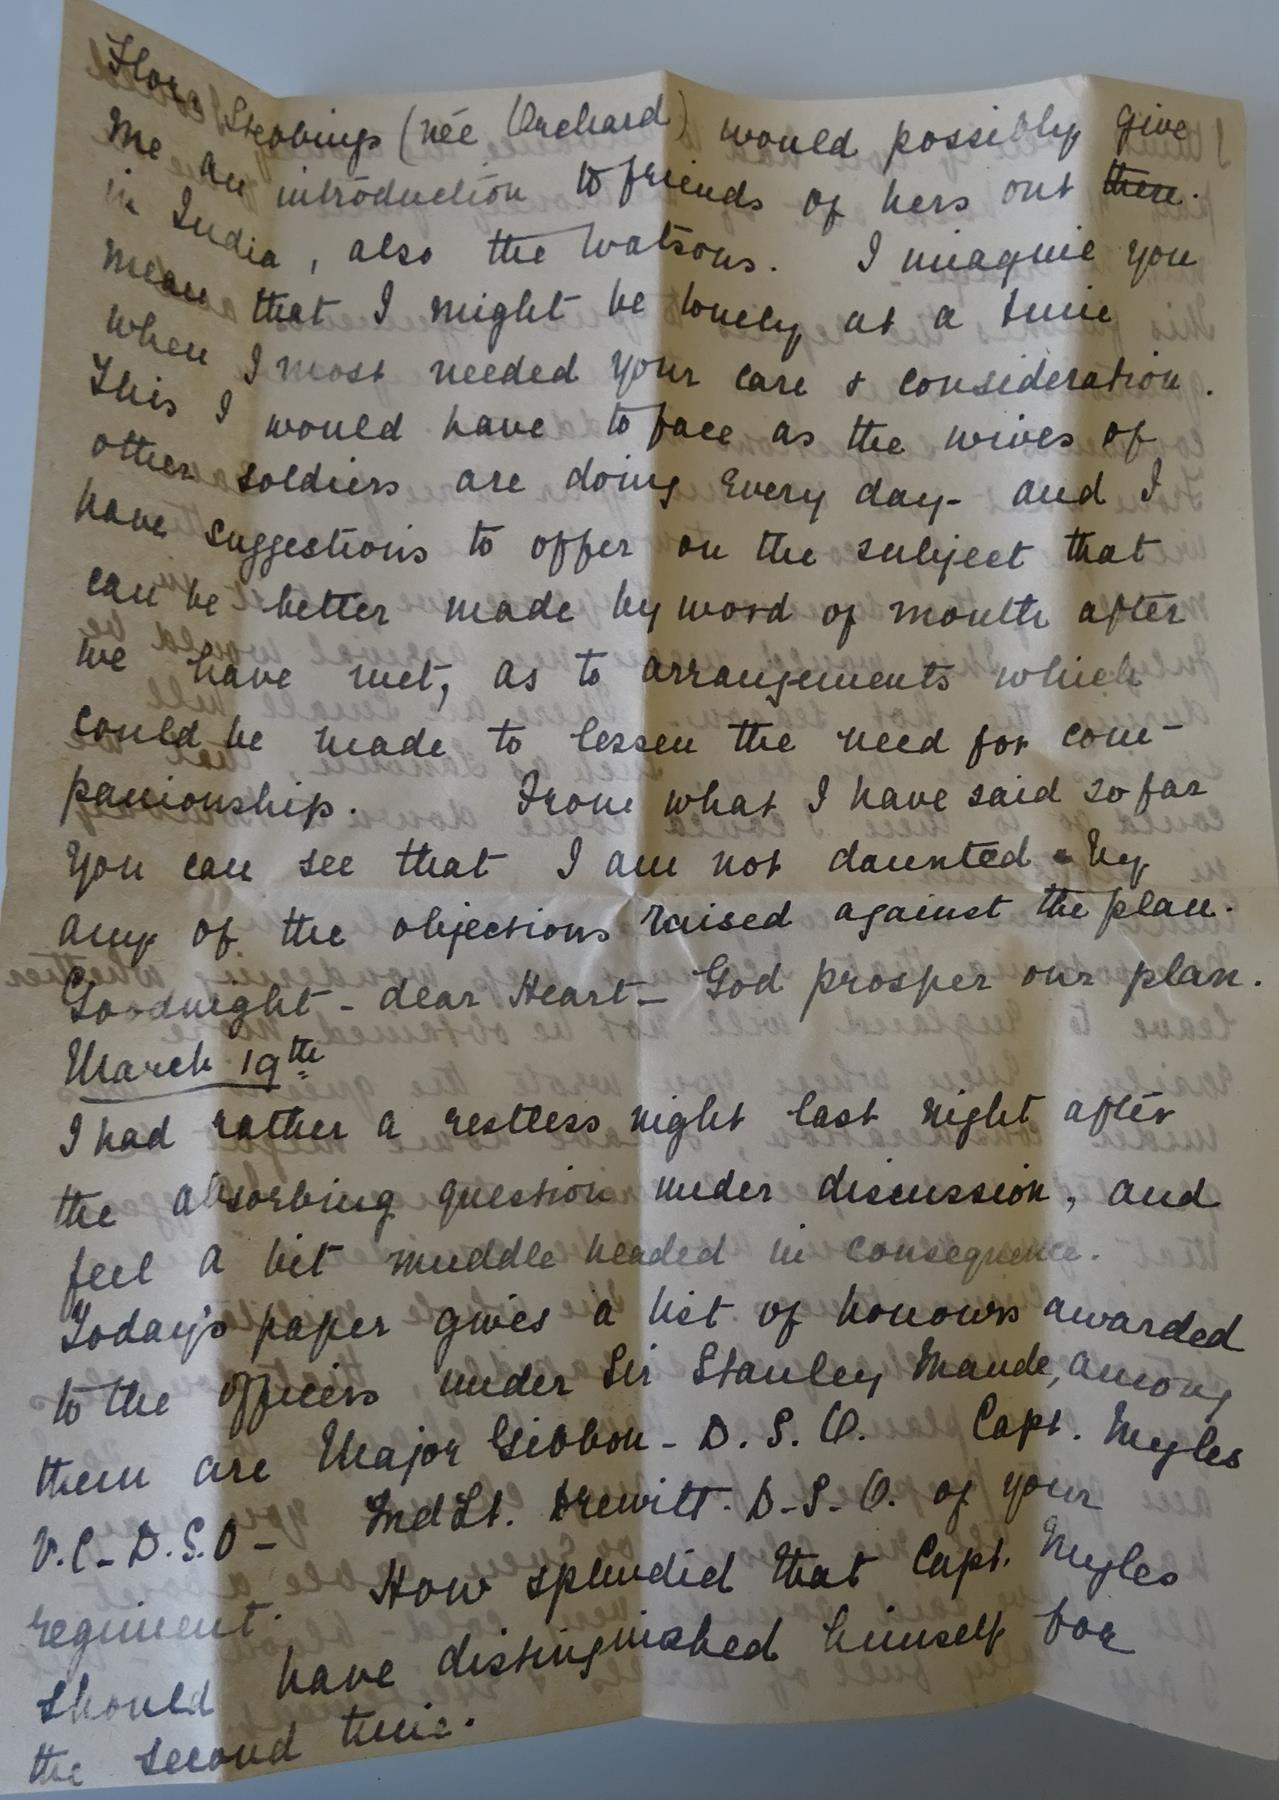 Flora Stebbings (née Orchard) would possibly give
me an introduction to friends of hers out there.
in India, also the Watsons. I imagine you
mean that I might be lonely at a time
when I most needed your care & consideration.
This I would have to face as the wives of
other soldiers are doing every day - and I
have suggestions to offer on the subject that
can be better made by word of mouth after
we have met, as to arrangements which
could be made to lessen the need for com-
panionship. From what I have said so far
you can see that I am not daunted by
any of the objections raised against the plan.
Goodnight - dear Heart - God prosper our plan.
March 19th
I had rather a restless night last night after
the absorbing question under discussion, and
feel a bit muddle headed in consequence.
Today's paper gives a list of honours awarded
to the officers under Sir Stanley Maude, among
them are Major Gibbon - D.S.O. Capt. Myles
V.C - D.S.O - 2nd Lt. Drewitt - D-S-O. of your
regiment. How splendid that Capt. Myles
should have distinguished himself for
the second time.